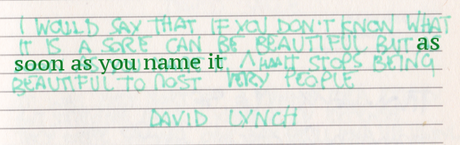 I WOULD SAY THAT IF YOU DON'T KNOW WHAT
IT IS A SORE CAN BE BEAUTIFUL BUT as
soon as you name it, STOPS BEING
BEAUTIFUL TO MOST VERY PEOPLE
DAVID LYNCH